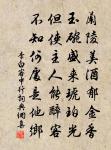 蘭陵美酒鬱金香
玉碗盛來琥珀光
但使主人能醉客
不知何處是他鄉
李白客中行詞典網意